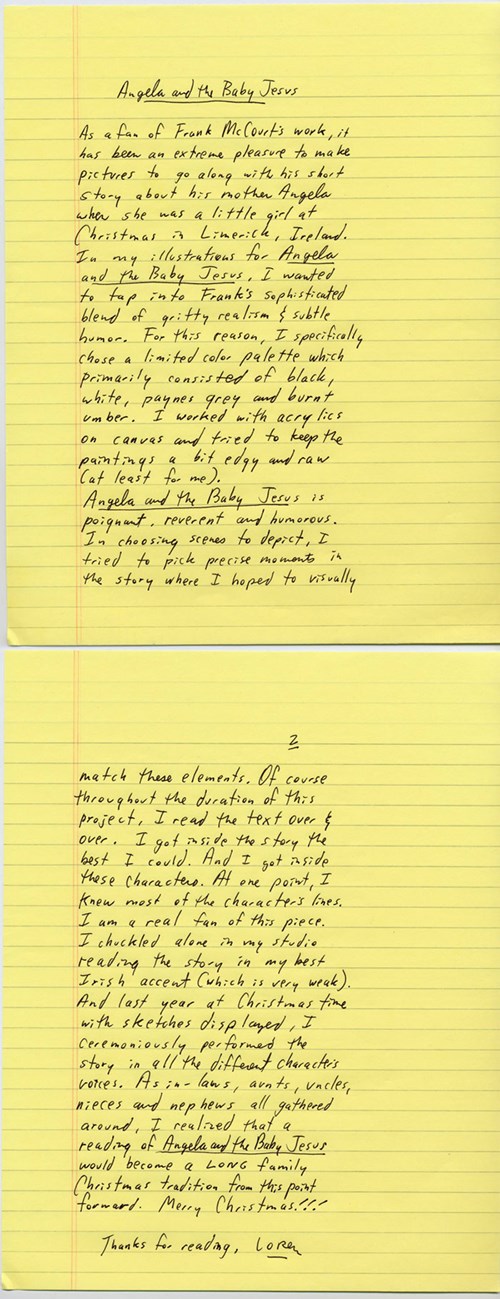 Angela and the Baby Jesus
As a fan of Frank McCourt's work, it
has been an extreme pleasure to make
pictures to go along with his short
story about his mother Angela
when she was a little girl at
Christmas in Limerick, Ireland.
In my illustrations for Angela
and the Baby Jesus, I wanted
to tap into Frank's sophisticated
blend of gritty realism & subtle
humor. For this reason, I specifically
chose a limited color palette which
primarily consisted of black,
white, paynes grey and burnt
umber. I worked with acrylics
on canvas and tried to keep the
paintings a bit edgy and raw
(at least for me).
Angela and the Baby Jesus is
poignant, reverent and humorous.
In choosing scenes to depict, I
tried to pick precise moments in
the story where I hoped to visually
2
match these elements. Of course
throughout the duration of this
project, I read the text over &
over. I got inside the story the
best I could. And I got inside
these characters. At one point, I
knew most of the character's lines.
I am a real fan of this piece.
I chuckled alone in my studio
reading the story in my best
Irish accent (which is very weak).
And last year at Christmas time
with sketches displayed, I
ceremoniously performed the
story in all the different character's
voices. As in-laws, aunts, uncles,
nieces and nephews all gathered
around, I realized that a
reading of Angela and the Baby Jesus
would become a LONG family
Christmas tradition from this point
forward. Merry Christmas!!!
Thanks for reading, LOREN